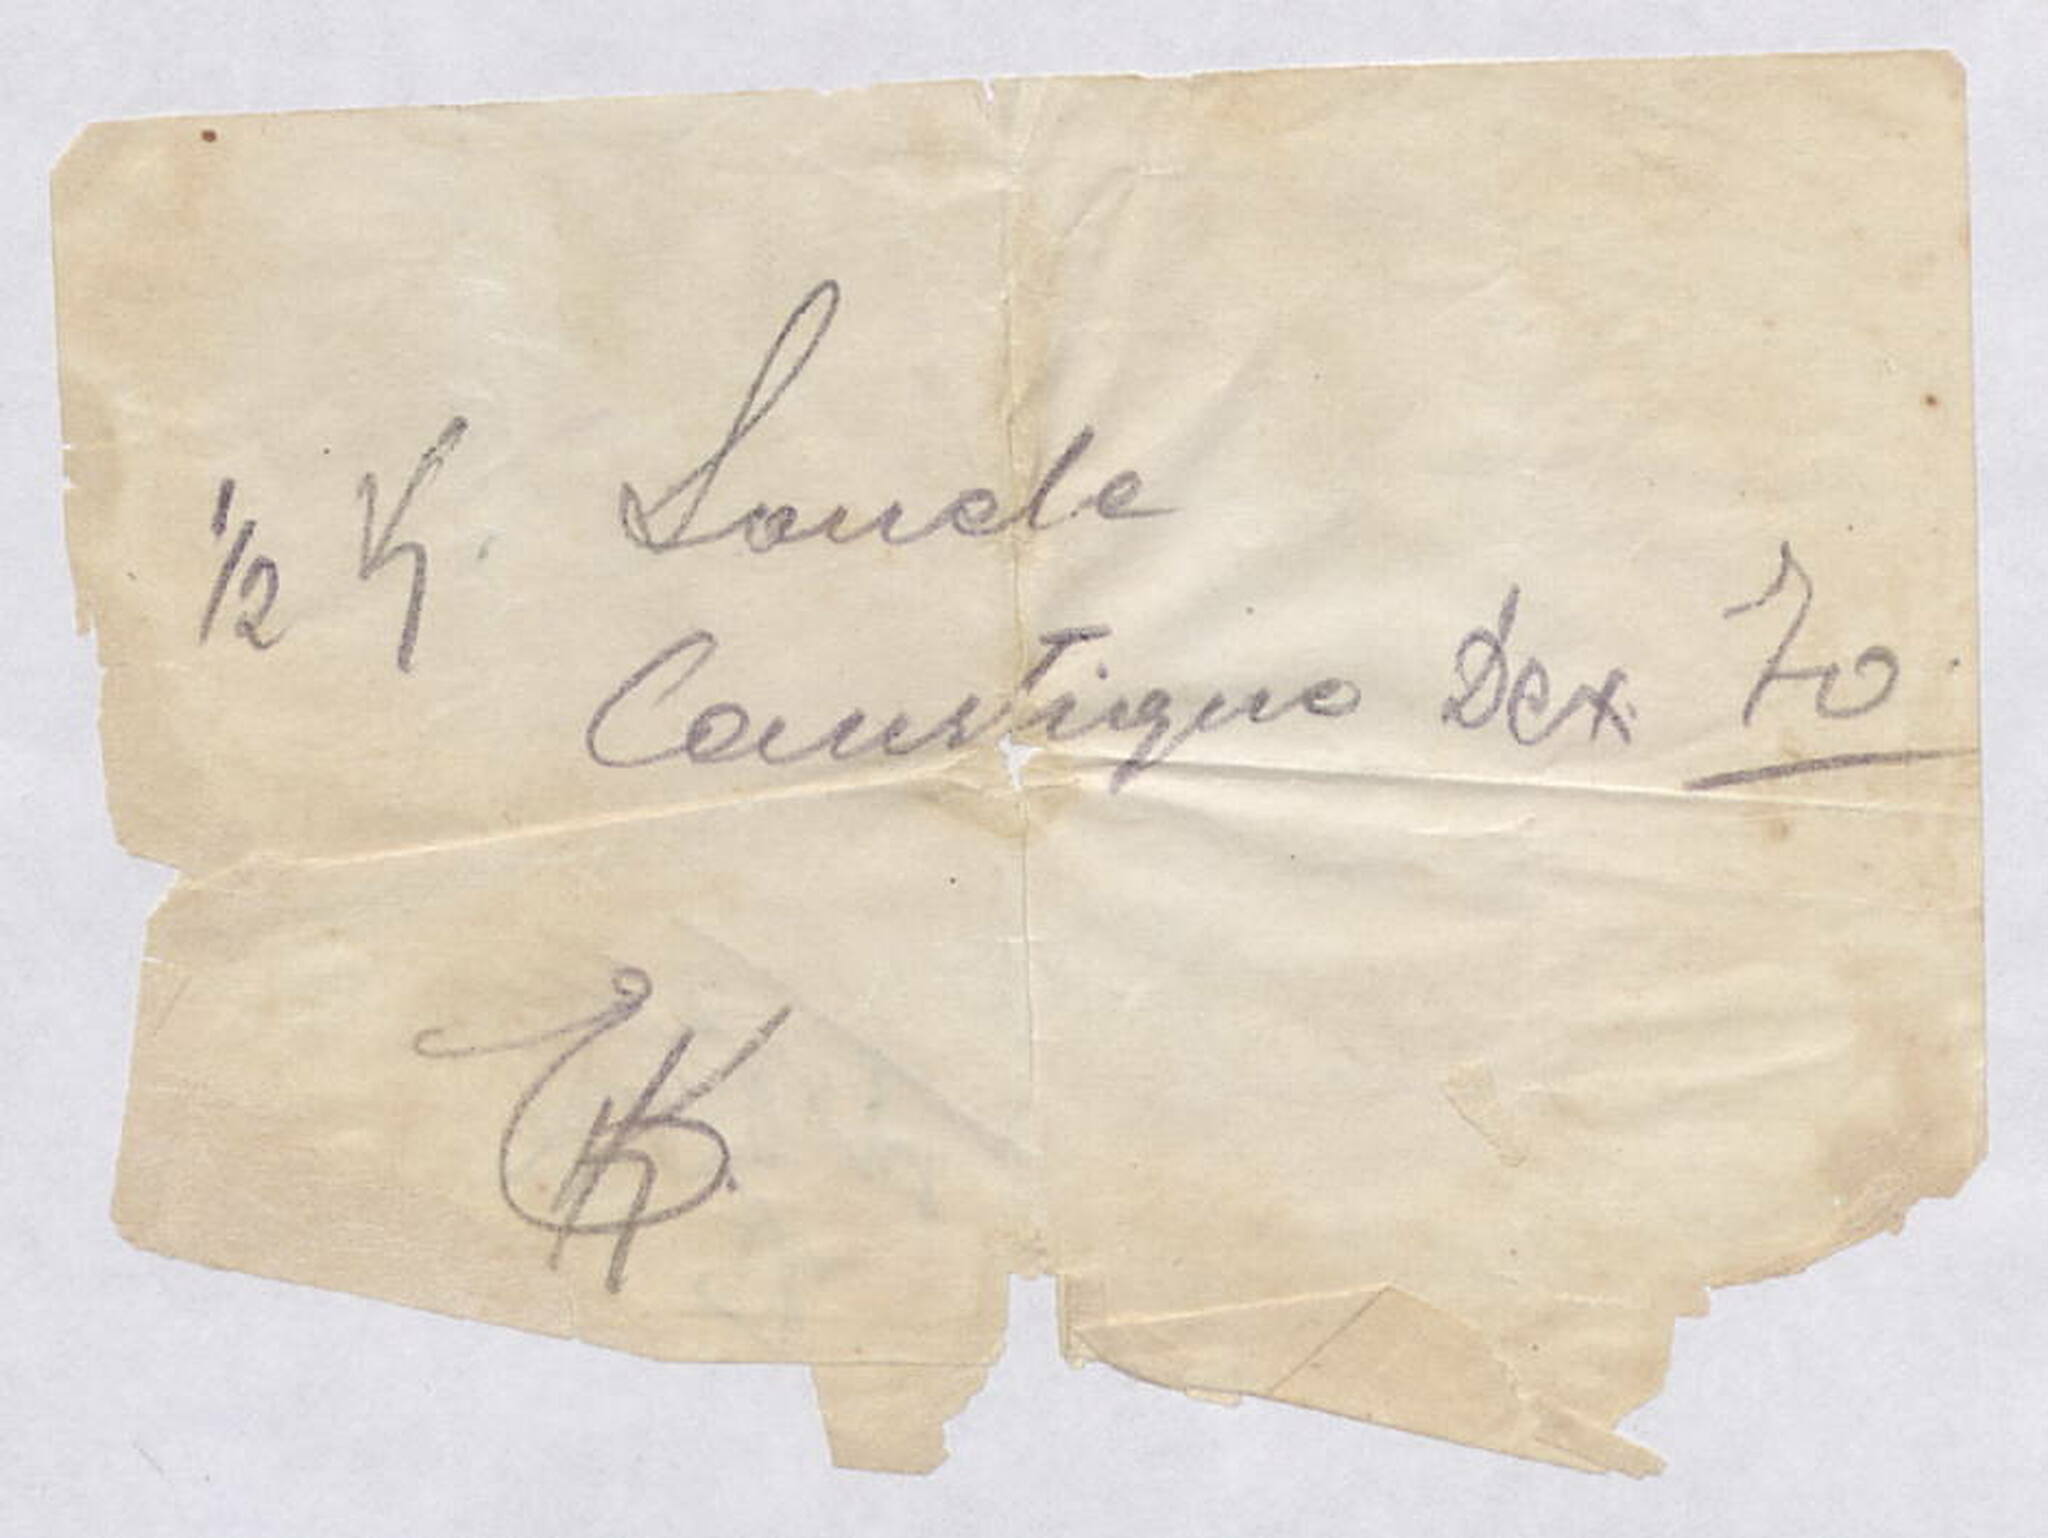 1/2 K. Soude
Caustique Dex 70
EK.